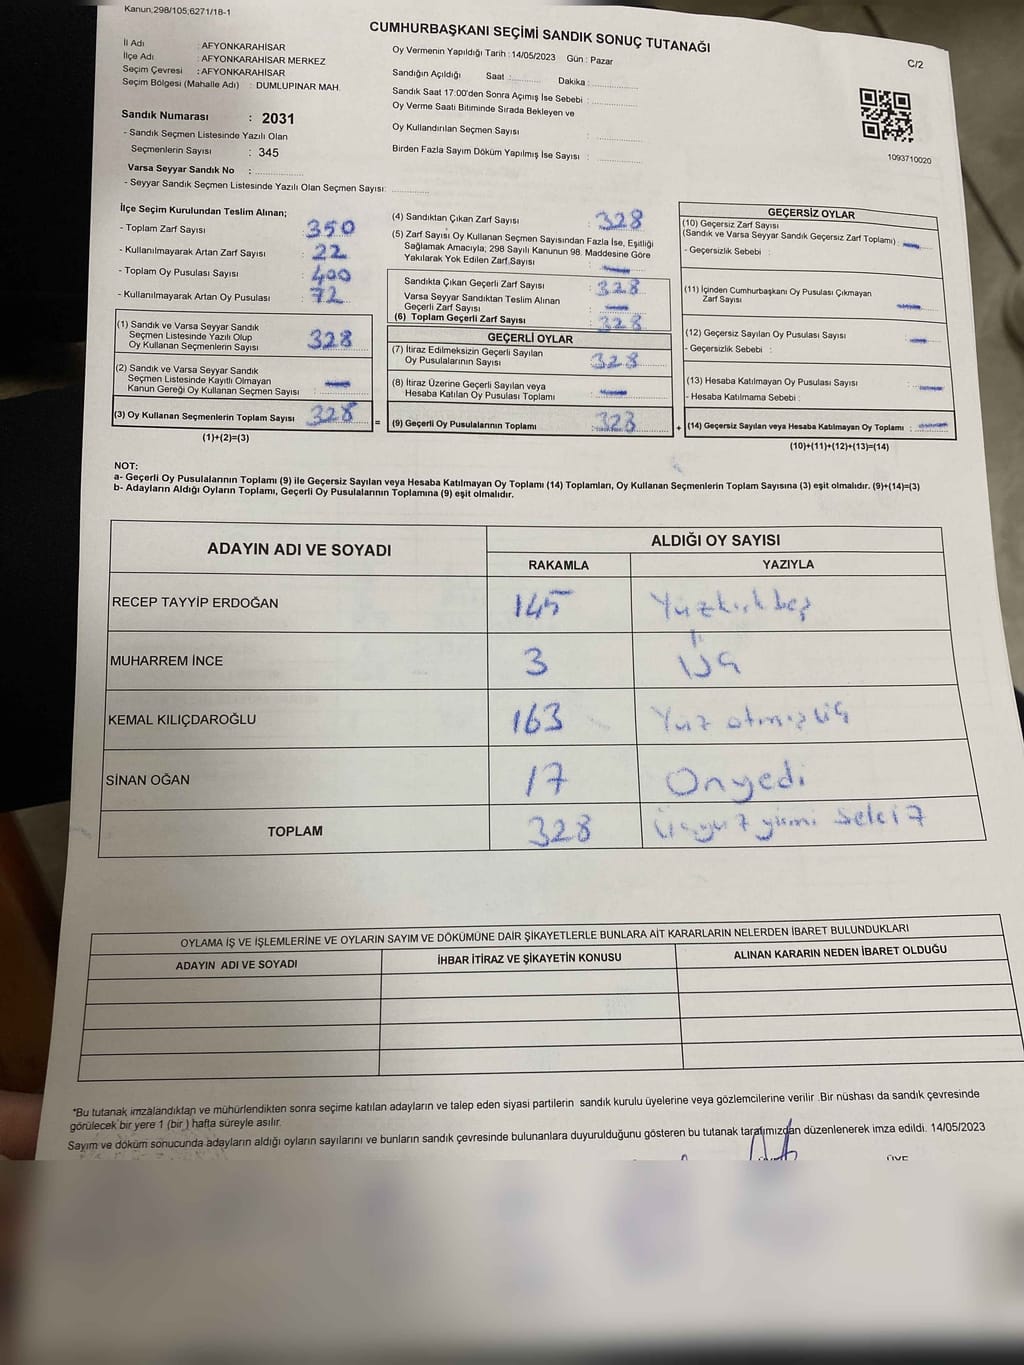 Kanun;298/105,6271/18-1
CUMHURBAŞKANI SEÇİMİ SANDIK SONUÇ TUTANAĞI
C/2
İl Adı : AFYONKARAHİSAR
İlçe Adı : AFYONKARAHİSAR MERKEZ
Seçim Çevresi : AFYONKARAHİSAR
Seçim Bölgesi (Mahalle Adı) : DUMLUPINAR MAH.
Sandık Numarası : 2031
- Sandık Seçmen Listesinde Yazılı Olan
Seçmenlerin Sayısı : 345
Varsa Seyyar Sandık No :
- Seyyar Sandık Seçmen Listesinde Yazılı Olan Seçmen Sayısı:
Oy Vermenin Yapıldığı Tarih : 14/05/2023 Gün : Pazar
Sandığın Açıldığı Saat : Dakika :
Sandık Saat 17:00'den Sonra Açımış İse Sebebi :
Oy Verme Saati Bitiminde Sırada Bekleyen ve
Oy Kullandırılan Seçmen Sayısı :
Birden Fazla Sayım Döküm Yapılmış İse Sayısı :
1093710020
İlçe Seçim Kurulundan Teslim Alınan;
- Toplam Zarf Sayısı : 350
- Kullanılmayarak Artan Zarf Sayısı : 22
- Toplam Oy Pusulası Sayısı : 400
- Kullanılmayarak Artan Oy Pusulası : 72
(1) Sandık ve Varsa Seyyar Sandık
Seçmen Listesinde Yazılı Olup
Oy Kullanan Seçmenlerin Sayısı : 328
(2) Sandık ve Varsa Seyyar Sandık
Seçmen Listesinde Kayıtlı Olmayan
Kanun Gereği Oy Kullanan Seçmen Sayısı : —
(3) Oy Kullanan Seçmenlerin Toplam Sayısı : 328
(1)+(2)=(3)
=
(4) Sandıktan Çıkan Zarf Sayısı : 328
(5) Zarf Sayısı Oy Kullanan Seçmen Sayısından Fazla İse, Eşitliği
Sağlamak Amacıyla; 298 Sayılı Kanunun 98. Maddesine Göre
Yakılarak Yok Edilen Zarf Sayısı : —
Sandıkta Çıkan Geçerli Zarf Sayısı : 328
Varsa Seyyar Sandıktan Teslim Alınan
Geçerli Zarf Sayısı : —
(6) Toplam Geçerli Zarf Sayısı : 328
GEÇERLİ OYLAR
(7) İtiraz Edilmeksizin Geçerli Sayılan
Oy Pusulalarının Sayısı : 328
(8) İtiraz Üzerine Geçerli Sayılan veya
Hesaba Katılan Oy Pusulası Toplamı : —
(9) Geçerli Oy Pusulalarının Toplamı : 328
+
GEÇERSİZ OYLAR
(10) Geçersiz Zarf Sayısı
(Sandık ve Varsa Seyyar Sandık Geçersiz Zarf Toplamı) : —
- Geçersizlik Sebebi :
(11) İçinden Cumhurbaşkanı Oy Pusulası Çıkmayan
Zarf Sayısı : —
(12) Geçersiz Sayılan Oy Pusulası Sayısı : —
- Geçersizlik Sebebi :
(13) Hesaba Katılmayan Oy Pusulası Sayısı : —
- Hesaba Katılmama Sebebi :
(14) Geçersiz Sayılan veya Hesaba Katılmayan Oy Toplamı : —
(10)+(11)+(12)+(13)=(14)
NOT:
a- Geçerli Oy Pusulalarının Toplamı (9) ile Geçersiz Sayılan veya Hesaba Katılmayan Oy Toplamı (14) Toplamları, Oy Kullanan Seçmenlerin Toplam Sayısına (3) eşit olmalıdır. (9)+(14)=(3)
b- Adayların Aldığı Oyların Toplamı, Geçerli Oy Pusulalarının Toplamına (9) eşit olmalıdır.
ADAYIN ADI VE SOYADI ALDIĞI OY SAYISI
RAKAMLA YAZIYLA
RECEP TAYYİP ERDOĞAN 145 Yüzkırkbeş
MUHARREM İNCE 3 Üç
KEMAL KILIÇDAROĞLU 163 Yüz atmış üç
SİNAN OĞAN 17 Onyedi
TOPLAM 328
OYLAMA İŞ VE İŞLEMLERİNE VE OYLARIN SAYIM VE DÖKÜMÜNE DAİR ŞİKAYETLERLE BUNLARA AİT KARARLARIN NELERDEN İBARET BULUNDUKLARI
ADAYIN ADI VE SOYADI İHBAR İTİRAZ VE ŞİKAYETİN KONUSU ALINAN KARARIN NEDEN İBARET OLDUĞU
*Bu tutanak imzalandıktan ve mühürlendikten sonra seçime katılan adayların ve talep eden siyasi partilerin sandık kurulu üyelerine veya gözlemcilerine verilir .Bir nüshası da sandık çevresinde
görülecek bir yere 1 (bir) hafta süreyle asılır.
Sayım ve döküm sonucunda adayların aldığı oyların sayılarını ve bunların sandık çevresinde bulunanlara duyurulduğunu gösteren bu tutanak tarafımızdan düzenlenerek imza edildi. 14/05/2023